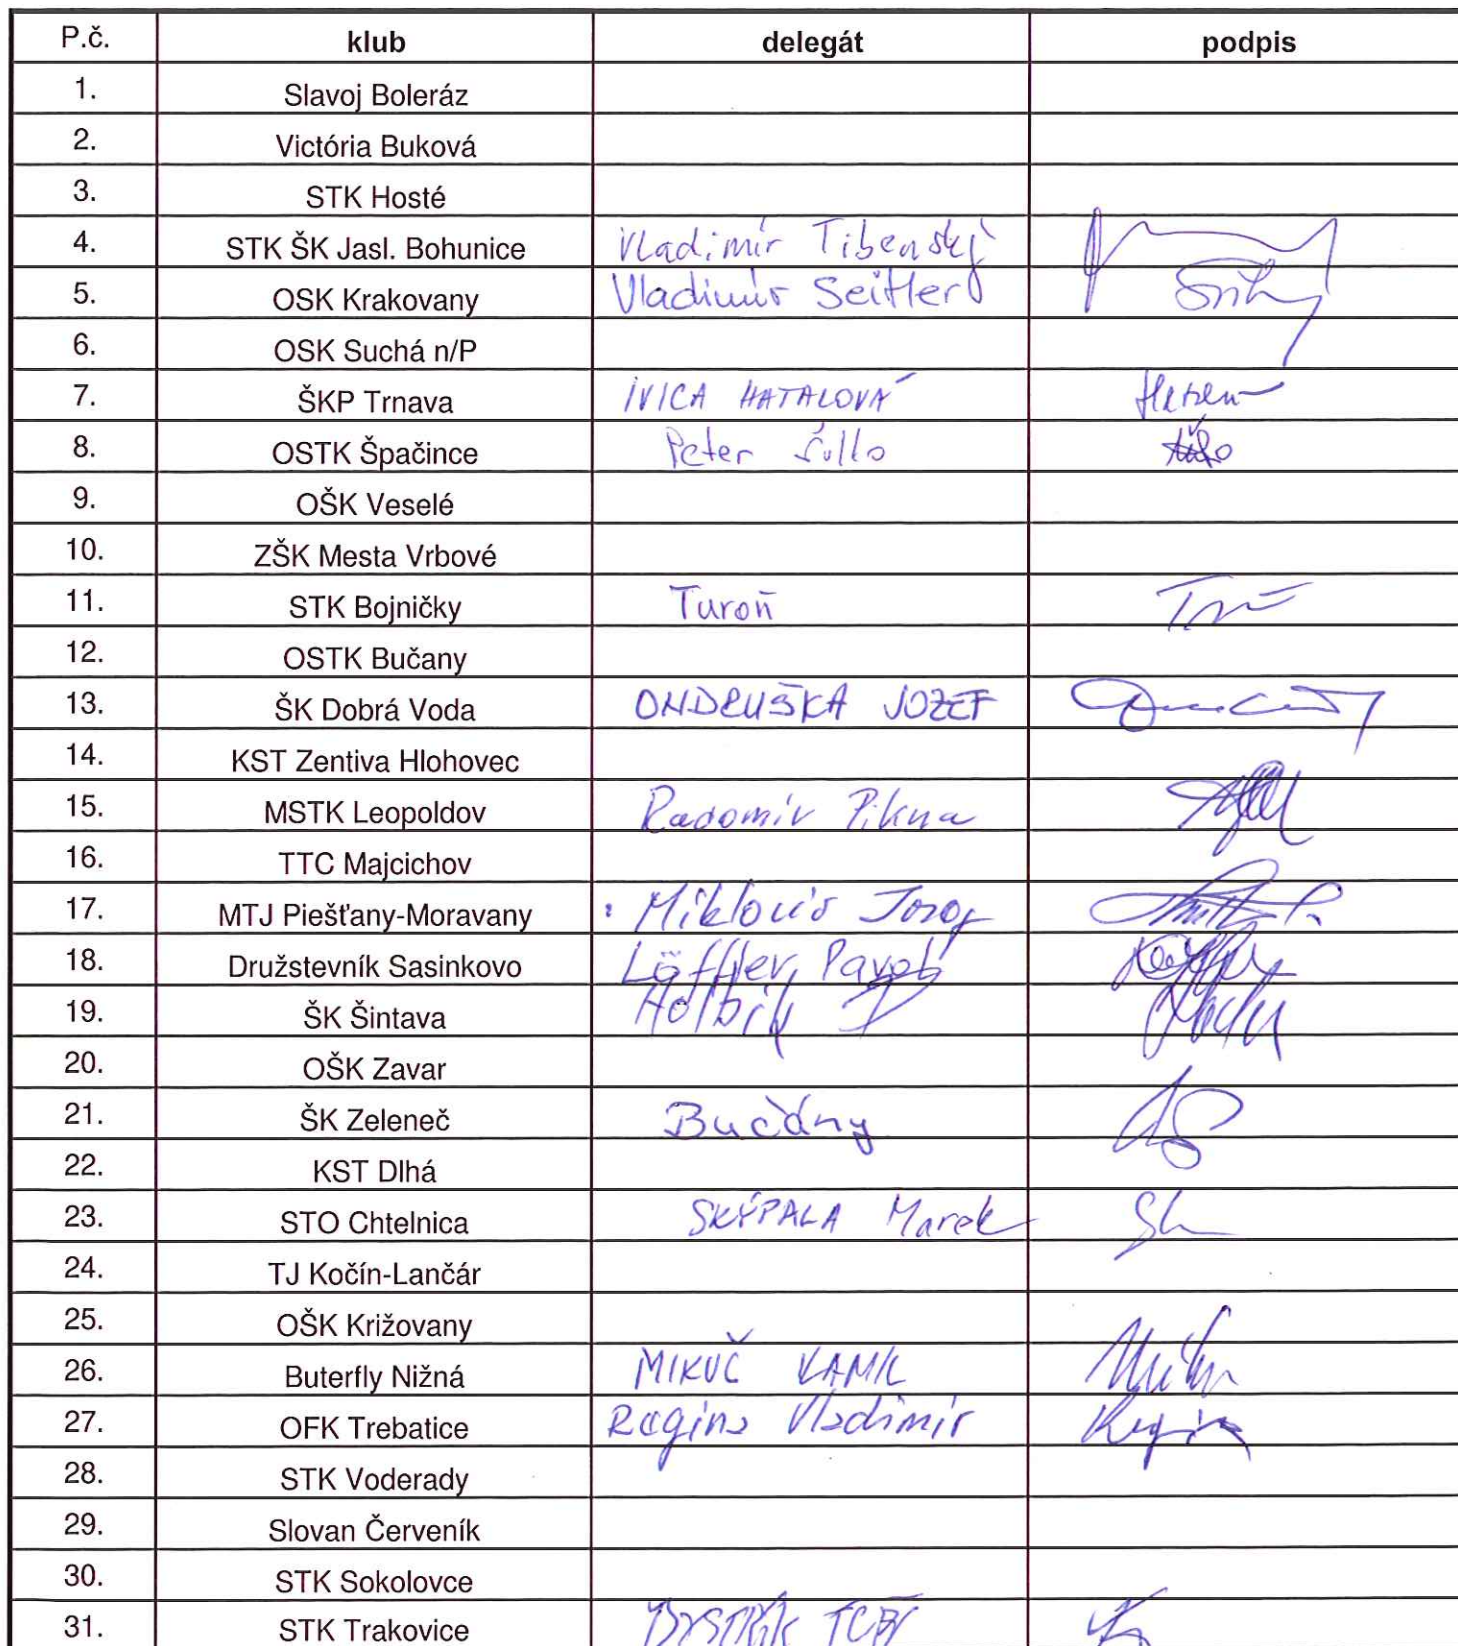 P.č. klub delegát podpis
1. Slavoj Boleráz
2. Victória Buková
3. STK Hosté
4. STK ŠK Jasl. Bohunice Vladimír Tibenský
5. OSK Krakovany Vladimír Seitler
6. OSK Suchá n/P
7. ŠKP Trnava IVICA HATALOVÁ
8. OSTK Špačince Peter Šullo
9. OŠK Veselé
10. ZŠK Mesta Vrbové
11. STK Bojničky Turoň
12. OSTK Bučany
13. ŠK Dobrá Voda ONDRUŠKA JOZEF
14. KST Zentiva Hlohovec
15. MSTK Leopoldov Radomír Pikna
16. TTC Majcichov
17. MTJ Piešťany-Moravany
18. Družstevník Sasinkovo Löffler Pavol
19. ŠK Šintava
20. OŠK Zavar
21. ŠK Zeleneč Bučány
22. KST Dlhá
23. STO Chtelnica SKÝPALA Marek
24. TJ Kočín-Lančár
25. OŠK Križovany
26. Buterfly Nižná MIKUČ KAMIL
27. OFK Trebatice Regina Vladimír
28. STK Voderady
29. Slovan Červeník
30. STK Sokolovce
31. STK Trakovice